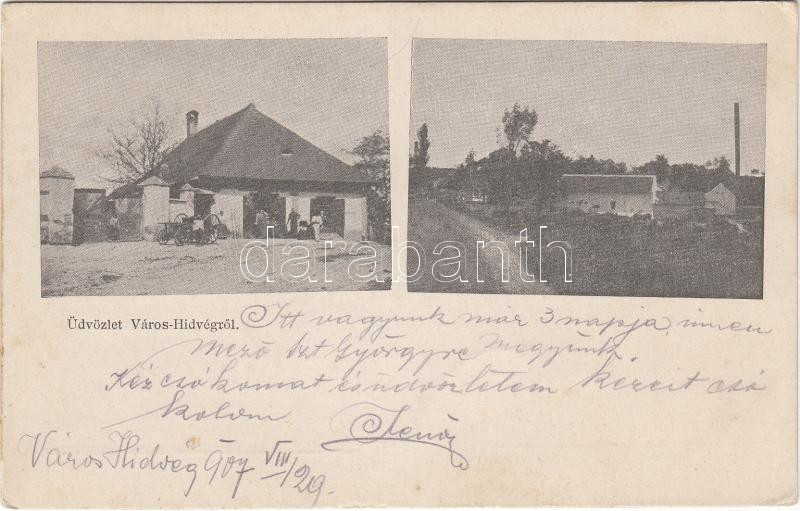 darabanth
Üdvözlet Város-Hidvégről.
Itt vagyunk már 3 napja, innen
Mező Szt Györgyre megyünk.
Kézcsókomat és üdvözletem kezeit csó
kolom
Jenőz
Város Hidveg 907 VIII/29.